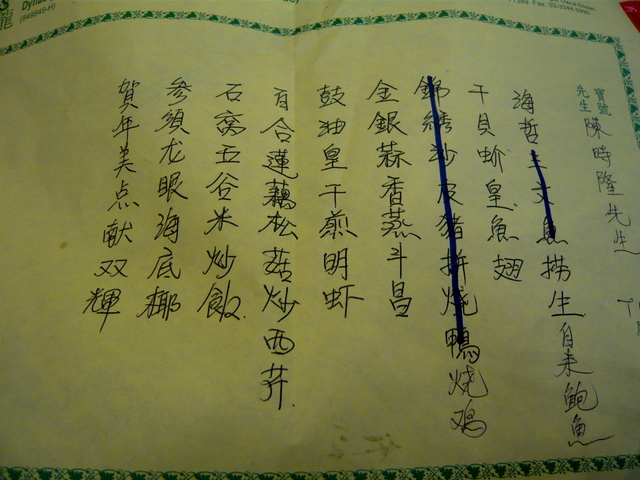 寶號
先生
陳時隆先生
海哲三文魚捞生自来鲍魚
干貝蚧皇魚翅
錦绣沙皮猪拼燒鴨燒鸡
金銀蒜香蒸斗昌
鼓油皇干煎明虾
百合蓮藕松菇炒西芹.
石窩五谷米炒飯.
参須龙眼海底椰
賀年美点献双輝